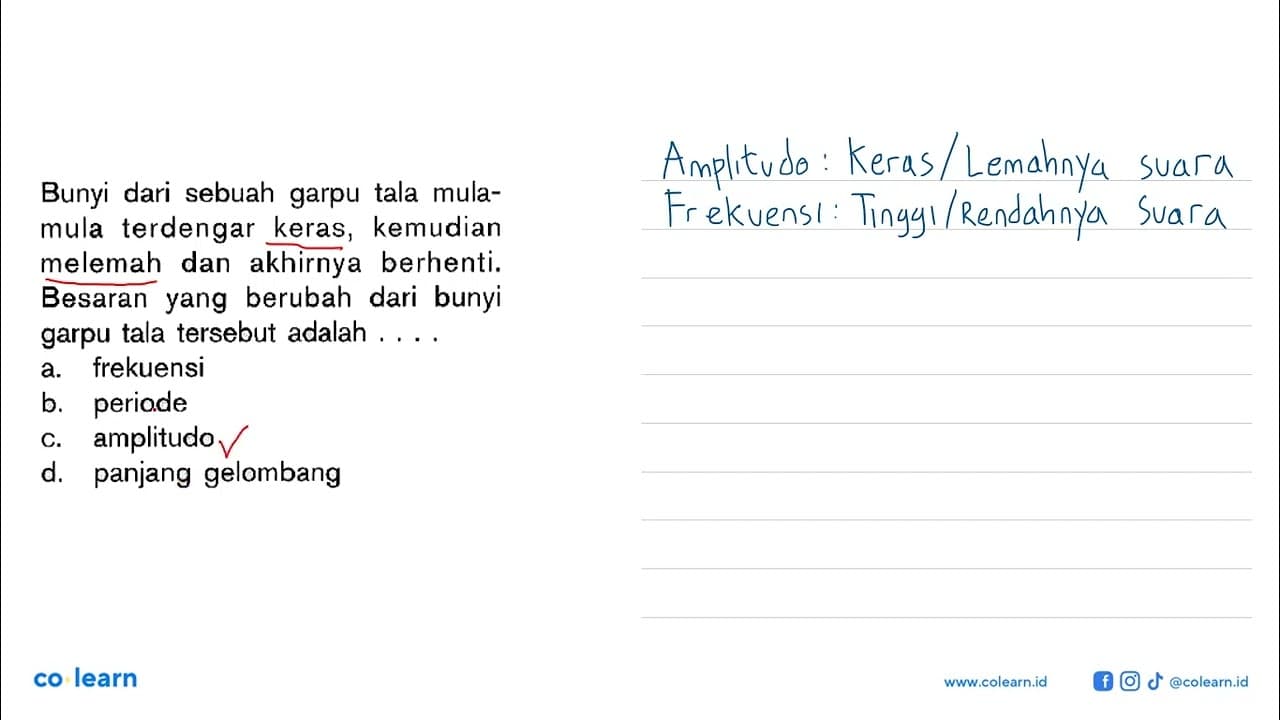 Bunyi dari sebuah garpu tala mula-
mula terdengar keras, kemudian
melemah dan akhirnya berhenti.
Besaran yang berubah dari bunyi
garpu tala tersebut adalah . . . .
a. frekuensi
b. periode
c. amplitudo
d. panjang gelombang
Amplitudo : Keras/Lemahnya suara
Frekuensi : Tinggi/Rendahnya Suara
co learn
www.colearn.id
@colearn.id